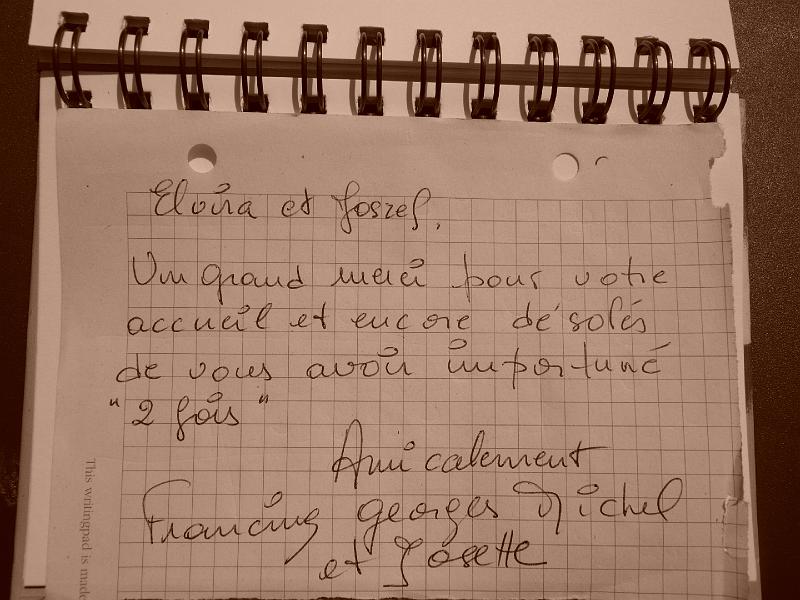 Elvira et Joszef,
Un grand merci pour votre
accueil et encore désolés
de vous avoir importuné
"2 fois"
Amicalement
Francine Georges Michel
et Josette
This writingpad is made